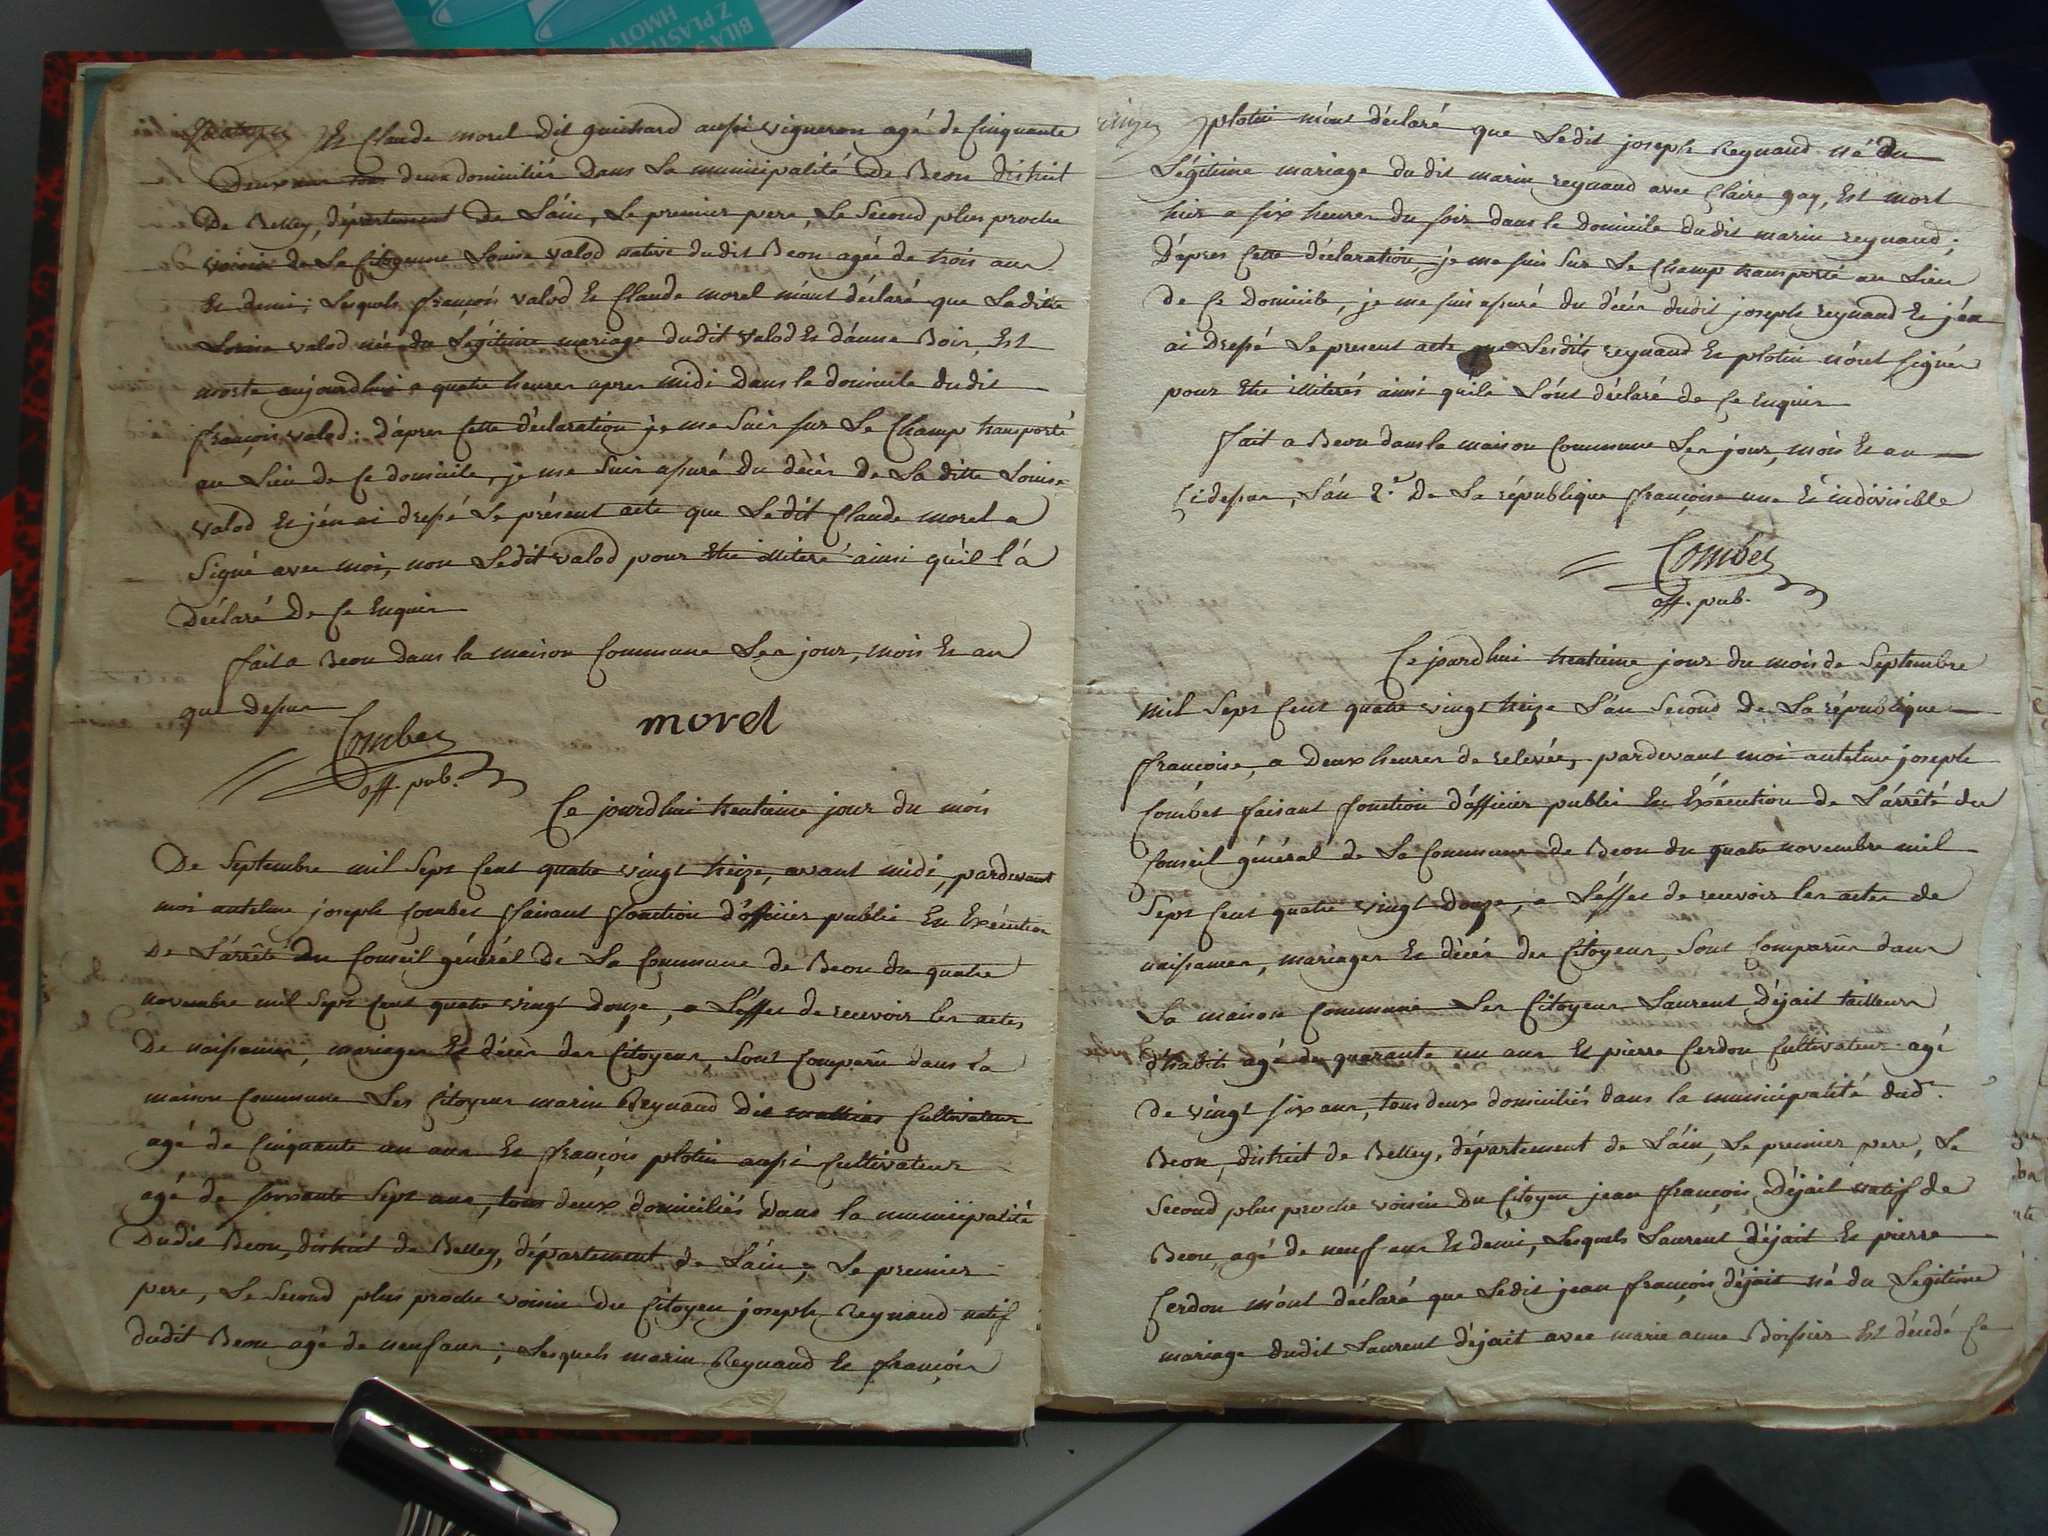 BILA
Z PLAST
HMOTY
quatorze
Et Claude morel dit guichard aussi vigneron agé de Cinquante
Deux ans tous deux domiciliés dans La municipalité De Beon district
De Belley, département de L'áin, Le premier pere, Le Second plus proche
voisin de La Citoyenne Louise valod native dudit Beon agée de trois ans
Et demi; Lesquels françois valod Et Claude morel m'ont déclaré que Laditte
Louise valod née du Légitime mariage dudit valod Et d'anne Boir, Est
morte aujourdhui a quatre heures apres midi dans le domicile dudit
françois valod: d'apres Cette déclaration je me Suis sur Le Champ transporté
au Lieu de Ce domicile, je me Suis assuré du décès de La ditte Louise
valod Et j'en ai dressé Le présent acte que Ledit Claude morel a
Signé avec moi, non Ledit valod pour Etre illiteré ainsi qu'il l'a
Déclaré de Ce Enquis
fait a Beon dans la maison Commune Les jour, mois Et an
que dessus
morel
Combet
off. pub.
Ce jourdhui trentieme jour du mois
De Septembre mil Sept Cent quatre vingt treize, avant midi, pardevant
moi antelme joseph Combet faisant fonction d'officier public En Exécution
De L'arrêté du Conseil général de La Commune de Beon du quatre
novembre mil Sept Cent quatre vingt douze, a L'effet de recevoir les actes
De naissances, mariages Et décès des Citoyens, Sont Comparus dans la
maison Commune Les Citoyens marin Reynaud dit mathias Cultivateur
agé de Cinquante un ans Et françois plotin aussi Cultivateur
agé de soixante Sept ans, tous deux domiciliés dans la municipalité
Dudit Beon, district de Belley, département de L'áin, Le premier
pere, Le Second plus proche voisin du Citoyen joseph Reynaud natif
dudit Beon agé de neuf ans; Lesquels marin Reynaud Et françois
plotin m'ont déclaré que Ledit joseph Reynaud né du
Légitime mariage dudit marin reynaud avec Claire gay, Est mort
hier a six heures du soir dans le domicile dudit marin reynaud;
D'apres Cette déclaration, je me suis Sur Le Champ transporté au Lieu
de Ce domicile, je me suis assuré du décès dudit joseph reynaud Et j'en
ai Dressé Le present acte que Lesdits reynaud Et plotin n'ont signés
pour Etre illiterés ainsi qu'ils L'ont déclaré de Ce Enquis
fait a Beon dans la maison Commune Les jour, mois Et an
Cidessus, L'an 2.e De La république françoise une Et indivisible
Combet
off. pub.
Ce jourdhui trentieme jour du mois de Septembre
mil Sept Cent quatre vingt treize L'an Second de La république
françoise, a Deux heures de relevée, pardevant moi antelme joseph
Combet faisant fonction d'officier public En Exécution de L'arrêté du
Conseil général de La Commune de Beon du quatre novembre mil
Sept Cent quatre vingt douze, a L'effet de recevoir les actes de
naissances, mariages Et décès des Citoyens, Sont Comparus dans
La maison Commune Les Citoyens Laurent Déjait tailleur
d'habits agé de quarante un ans Et pierre Cerdon Cultivateur agé
de vingt six ans, tous deux domiciliés dans la municipalité dudt.
Beon, district de Belley, département de L'áin, Le premier pere, Le
Second plus proche voisin du Citoyen jean françois Déjait natif de
Beon, agé de neuf ans Et demi, Lesquels Laurent déjait Et pierre
Cerdon m'ont déclaré que Ledit jean françois déjait né du Légitime
mariage dudit Laurent déjait avec marie anne Boissier Est décédé Ce